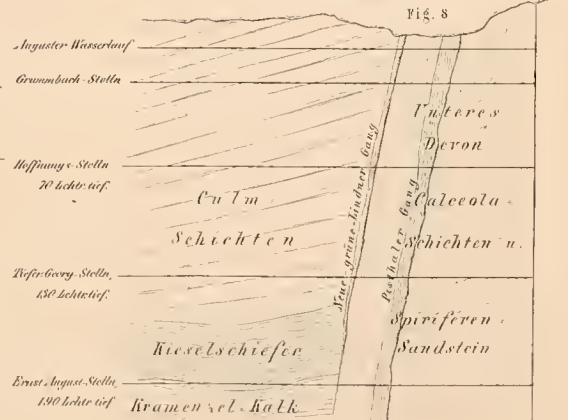 Fig. 8
Auguster Wasserlauf
Grummbach-Stolln
Hoffnungs-Stolln
70 Lchtr. tief.
Tiefer Georg-Stolln
130 Lchtr. tief.
Ernst-August-Stolln
190 Lchtr. tief
Culm
Schichten
Kieselschiefer
Kramenzel-Kalk
Neue-grüne-Lindner Gang
Pisthaler Gang
Unteres
Devon
Calceola-
Schichten u.
Spiriferen-
Sandstein